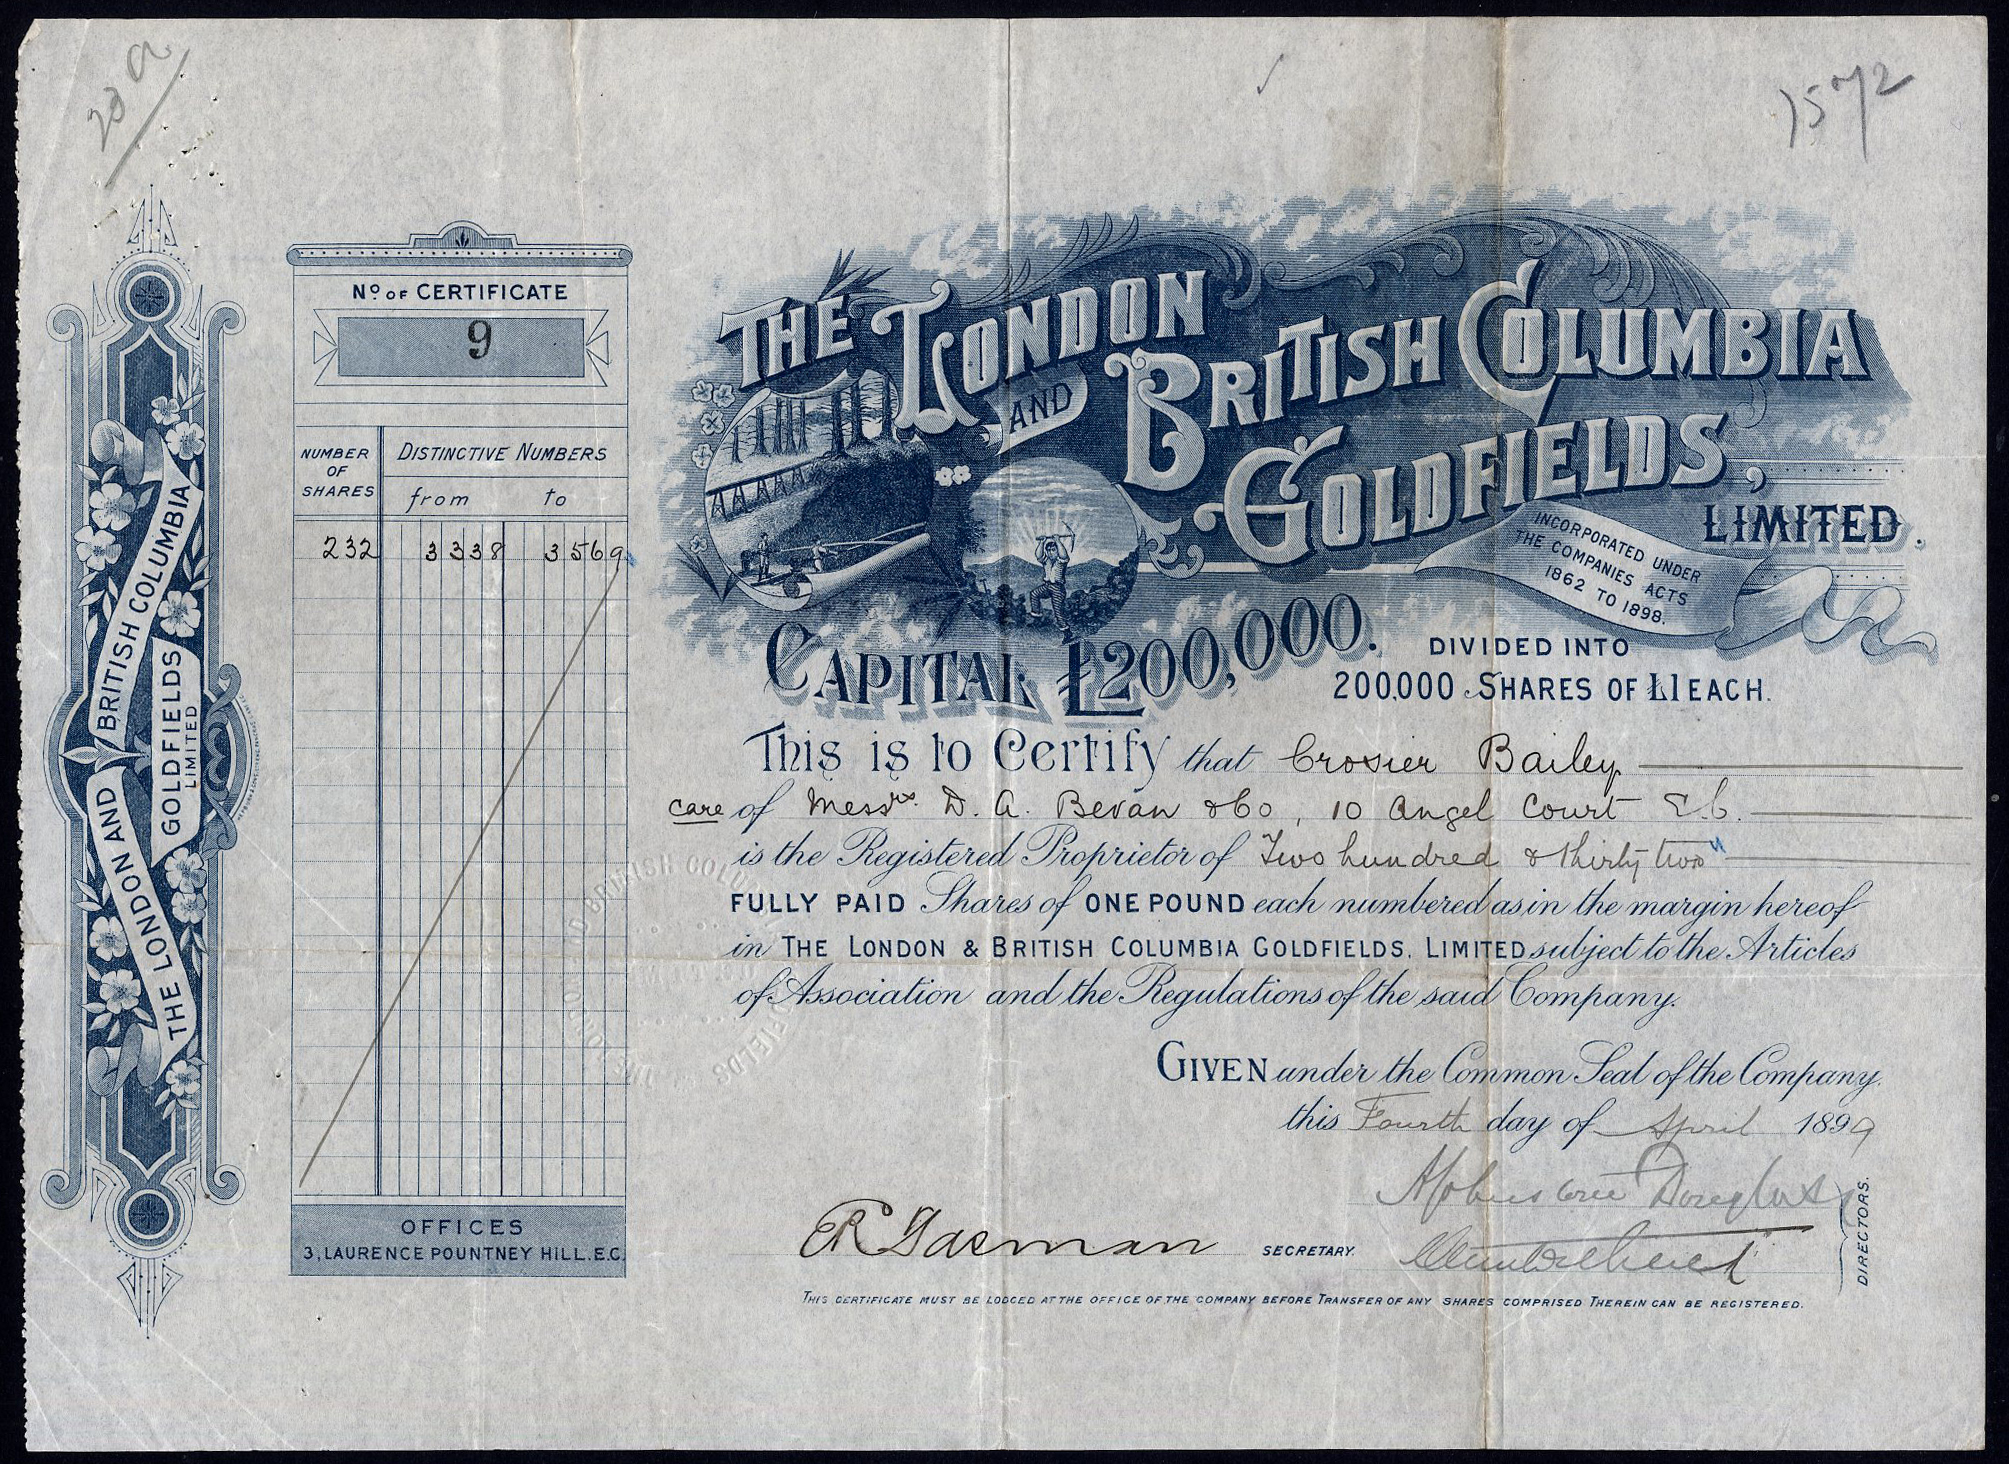 20 a
15072
THE LONDON
AND
BRITISH COLUMBIA
GOLDFIELDS,
LIMITED.
INCORPORATED UNDER
THE COMPANIES ACTS
1862 TO 1898.
THE LONDON AND BRITISH COLUMBIA
GOLDFIELDS
LIMITED
No OF CERTIFICATE
9
NUMBER
OF
SHARES
DISTINCTIVE NUMBERS
from to
232 3338 3569
OFFICES
3, LAURENCE POUNTNEY HILL. E.C.
CAPITAL £200,000. DIVIDED INTO
200,000 SHARES OF £1 EACH.
This is to Certify that Crosier Bailey
care of Messrs. D. A. Bevan & Co, 10 Angel Court E.C.
is the Registered Proprietor of Two hundred & thirty two
FULLY PAID Shares of ONE POUND each numbered as in the margin hereof
in THE LONDON & BRITISH COLUMBIA GOLDFIELDS. LIMITED subject to the Articles
of Association and the Regulations of the said Company.
GIVEN under the Common Seal of the Company.
this Fourth day of April 1899
Douglas
SECRETARY.
DIRECTORS.
THIS CERTIFICATE MUST BE LODGED AT THE OFFICE OF THE COMPANY BEFORE TRANSFER OF ANY SHARES COMPRISED THEREIN CAN BE REGISTERED.